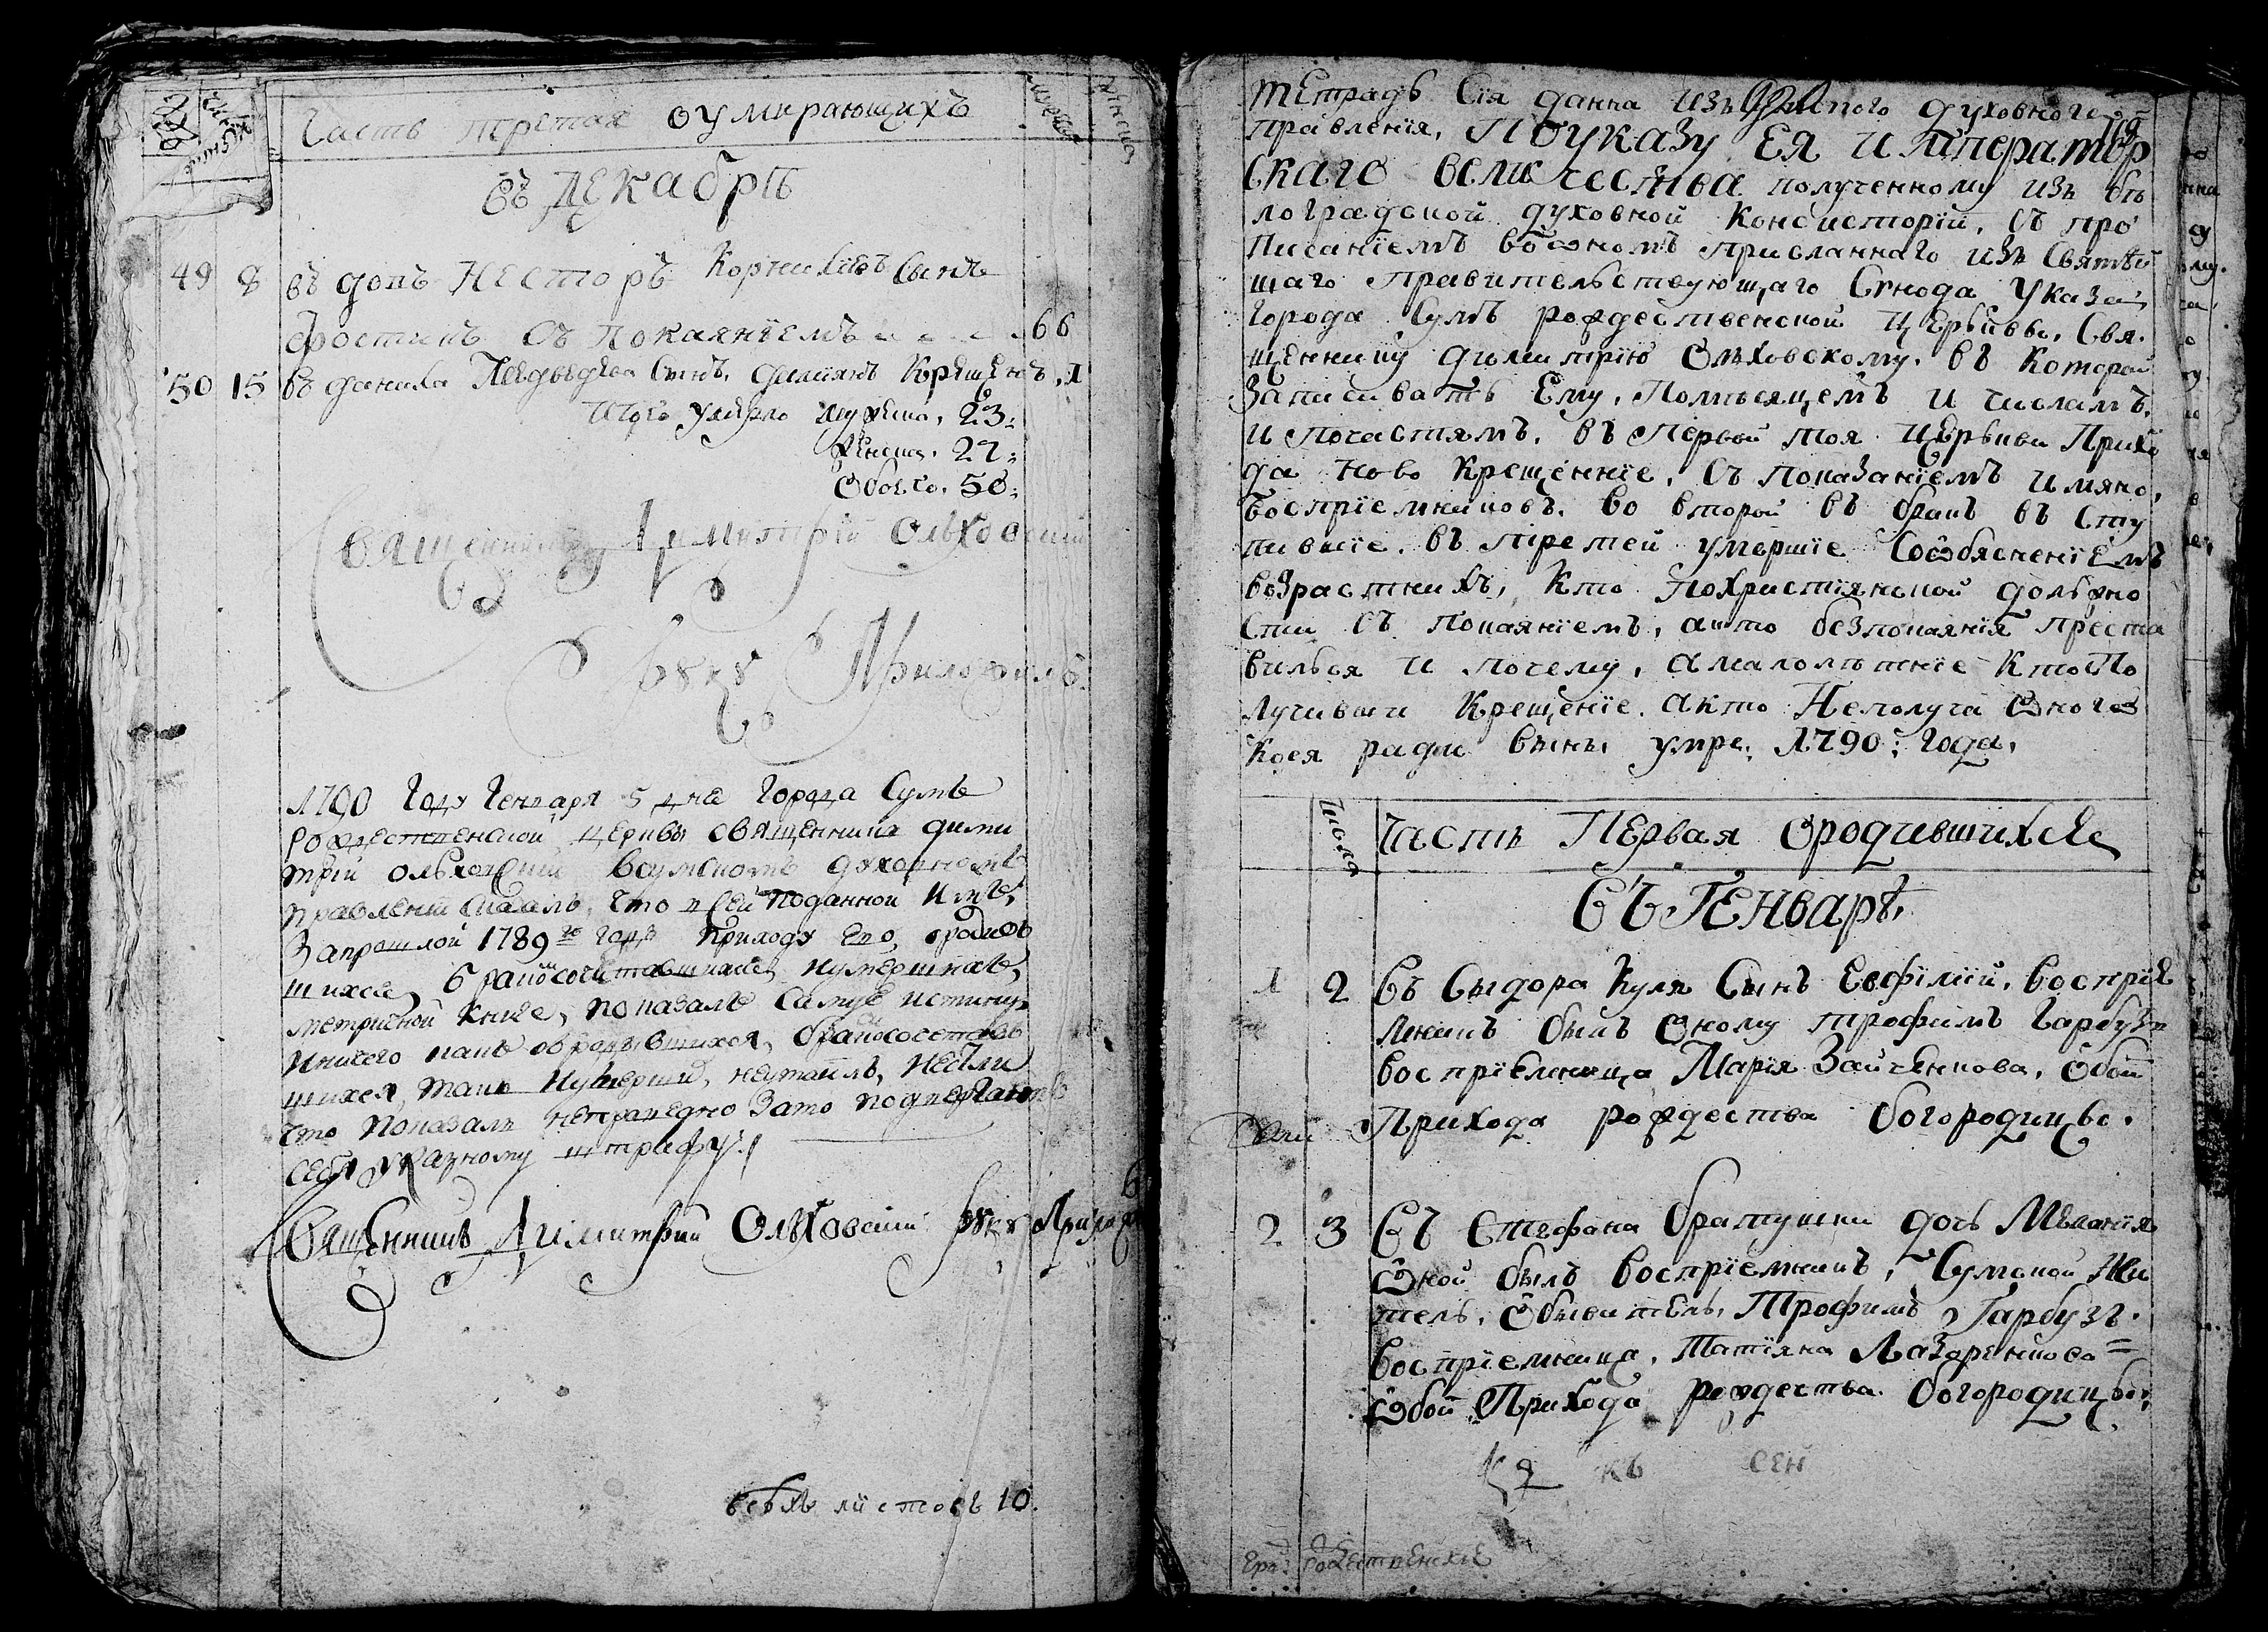 Часть третая оумирающихъ
въ декабрѣ
49 8 въ домъ Несторъ Корнилїевъ Сынъ
Фростинъ Съ покаянїемъ 66
50 15 въ данила Медвѣдева Сынъ, дамиянъ Крещенъ, 1
Итого Умерло мужеска, 23:
женска. 27:
Обоего. 50:
Священникъ Димитрїй Ольховскїй
руку Приложилъ.
1790 Году Генваря 5 дня Города Сумъ
рождественской церкви священникъ дими
трїй ольховскїй всумскомъ духовномъ
правленїи сказалъ, что в сей поданной имъ,
За прошлой 1789го годъ приходу его, ородив
шихся, бракосочетавшихся, иумершихъ,
метричной книге, показалъ самую истинну,
иничего какъ ородившихся, бракосочетав
шихся, такъ иумершихъ, неутаилъ, Несли
что показалъ неправедно Зато подвергаетъ
себя указному штрафу.
Священникъ Димитрїй Ольховскїй руку Прило
всѣхъ листовъ 10.
тетрадь Сїя данна Изъ Сумского духовного
правленїя, По указу Ея Император
скаго величества полученному изъ бѣ
лоградской духовной Консисторїи, съ про
писанїемъ во ономъ присланнаго изъ Святѣй
шаго Правительствующаго Сгнода Указа,
города Сумъ рождественской Церькви, Свя.
щеннику димитрїю Ольховскому. въ которой
Записивать Ему, Помѣсяцемъ и числамъ,
и почастямъ. въ первой тоя Церькви Прихо
да ново крещеннїе, съ показанїемъ имяно,
воспрїемниковъ. во второй въ бракъ въ сту
пившїе. въ третей умершїе Сообясненїемъ
возрастнихъ, Кто Похристїянской должно
сти съ покаянїемъ, акто безпокаянїя преста
вилься и почему, амалолѣтнїе Кто По
лучивши Крещенїе. Акто Неполуча Оного
Коея ради вѣны умре. 1790: года,
Числа Часть Первая ородившихся
Въ Генварѣ,
1 2 Въ Сидора Куля Сынъ Евфїмїй, воспрїе
мникъ былъ Оному трофимъ Гарбузъ
воспрїемница Марїя Зайченкова, Обои
Прихода рождества богородицы.
2 3 Въ Стефана братушки дочь Меланїя
Оной былъ воспрїемникъ, Сумской Жи
тель, Обыватель, Трофимъ Гарбузъ.
воспрїемница, Татїяна Лазаренкова
Обои Прихода рождества богородицы,
къ сей